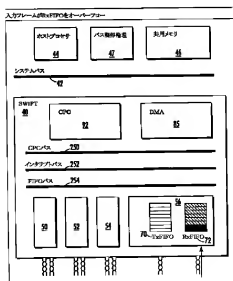 入力フレームがRxFIFOをオーバーフロー
ホストプロセサ
44
バス調停論理
47
共用メモリ
46
システムバス
42
SWIFT
40
CPG
92
DMA
85
CPCバス 250
インタラプトバス 252
FIFOバス 254
50
52
54
56
70 TxFIFO
RxFIFO 72